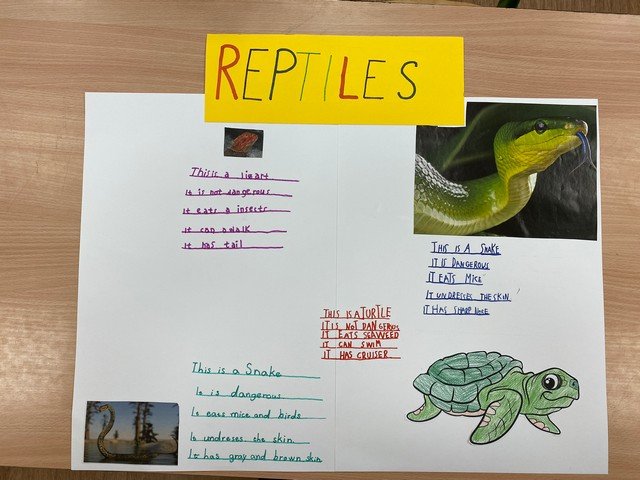 REPTILES
This is a lizart
It is not dangerous
It eats a insects
It can a walk
It has tail
THIS IS A SNAKE
IT IS DANGEROUS
IT EATS MICE
IT UNDRESSES THE SKIN
IT HAS SHARP NOSE
THIS IS A TURTLE
IT IS NOT DANGEROUS
IT EATS SEAWEED
IT CAN SWIM
IT HAS CRUISER
This is a Snake
It is dangerous
It eats mice and birds
It undreses the skin
It has gray and brown skin